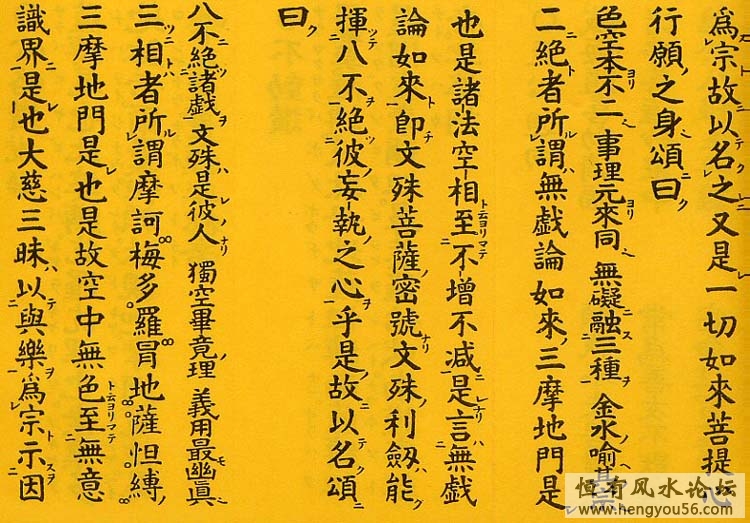 爲宗故以名之又是一切如來菩提心
行願之身頌曰
色空本不二 事理元來同 無礙融三種 金水喻其宗
二絕者所謂無戲論如來三摩地門是
也是諸法空相至不增不減是言無戲
論如來卽文殊菩薩密號文殊利劔能
揮八不絕彼妄執之心乎是故以名頌
曰
八不絕諸戲 文殊是彼人 獨空畢竟理 義用最幽眞
三相者所謂摩訶梅多羅冐地薩怛縛
三摩地門是也是故空中無色至無意
識界是也大慈三昧以與樂爲宗示因
恒有风水论坛
www.hengyou56.com